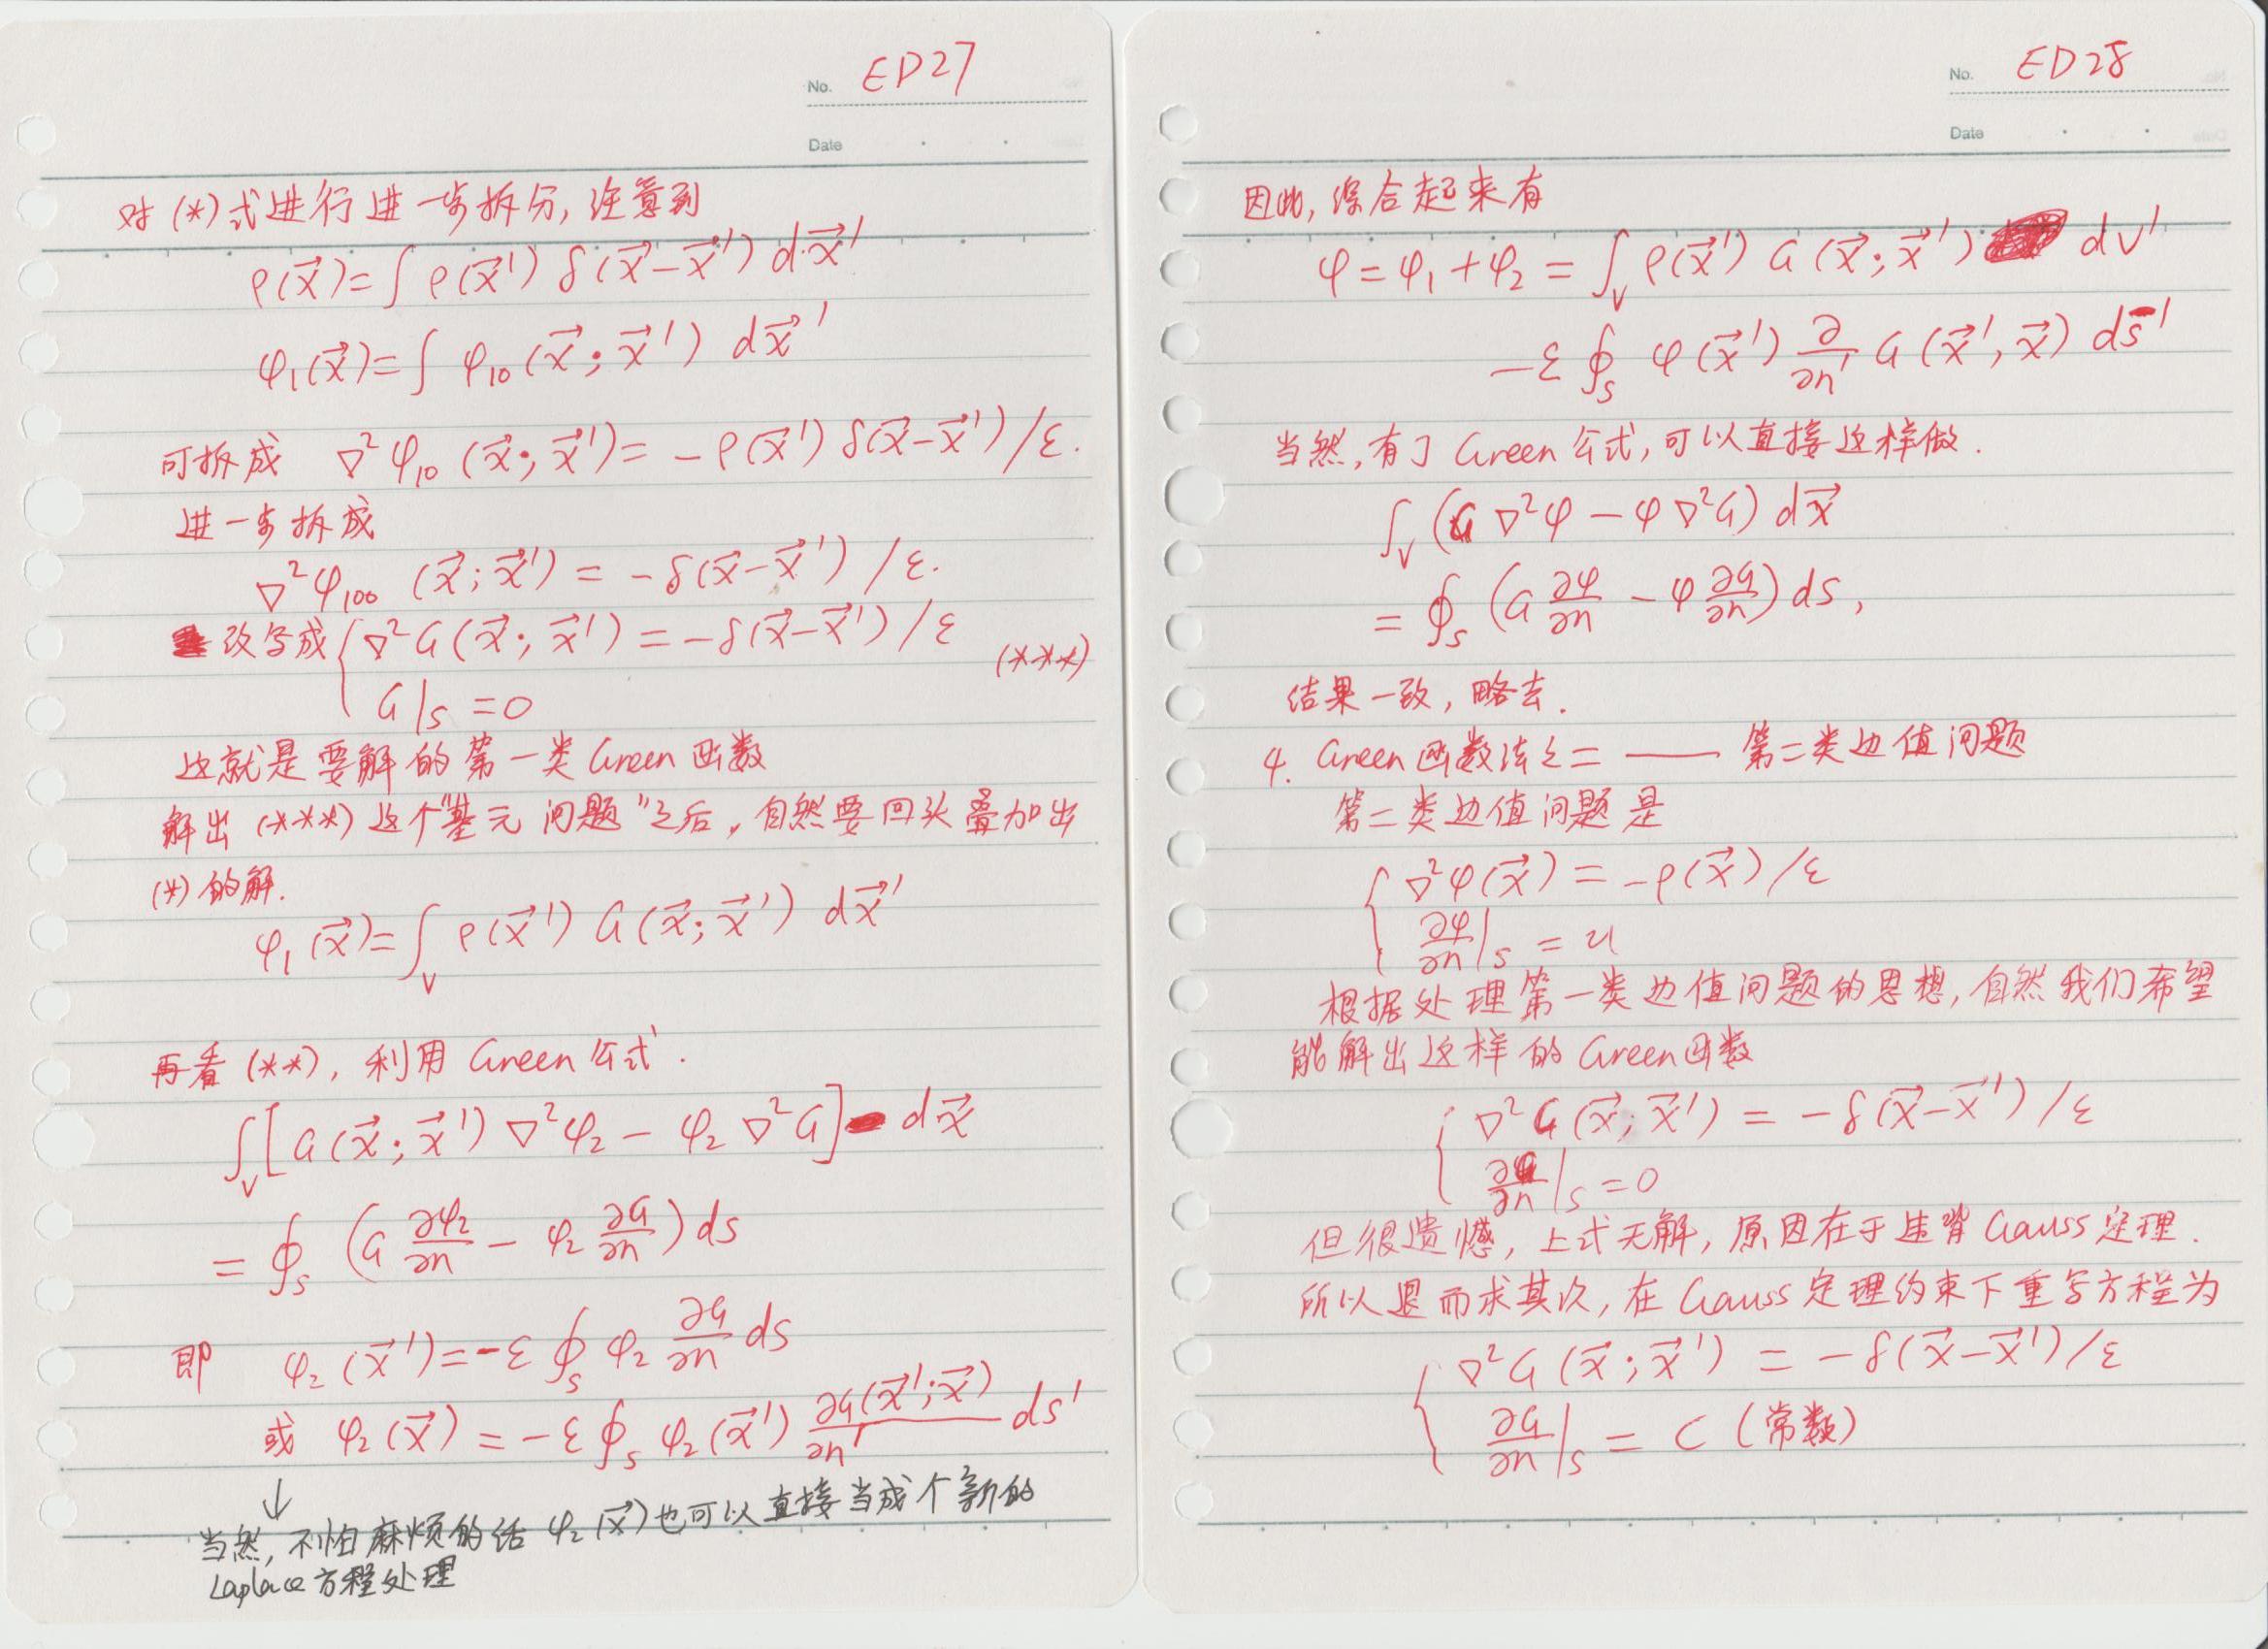 No. ED27
Date
对(*)式进行进一步拆分,注意到
ρ(x⃗)=∫ρ(x⃗')δ(x⃗-x⃗')dx⃗'
φ₁(x⃗)=∫φ₁₀(x⃗;x⃗')dx⃗'
可拆成 ∇²φ₁₀(x⃗;x⃗')=-ρ(x⃗')δ(x⃗-x⃗')/ε.
进一步拆成
∇²φ₁₀₀(x⃗;x⃗')=-δ(x⃗-x⃗')/ε.
改写成{∇²G(x⃗;x⃗')=-δ(x⃗-x⃗')/ε (***)
G|s=0
这就是要解的第一类Green函数
解出(***)这个"基元问题"之后,自然要回头叠加出
(*)的解.
φ₁(x⃗)=∫_V ρ(x⃗')G(x⃗;x⃗')dx⃗'
再看(**),利用Green公式.
∫_V[G(x⃗;x⃗')∇²φ₂-φ₂∇²G]dx⃗
=∮_S(G ∂φ₂/∂n-φ₂ ∂G/∂n)ds
即 φ₂(x⃗')=-ε∮_S φ₂ ∂G/∂n ds
或 φ₂(x⃗)=-ε∮_S φ₂(x⃗') ∂G(x⃗';x⃗)/∂n' ds'
↓
当然,不怕麻烦的话 φ₂(x⃗)也可以直接当成个新的
Laplace方程处理
No. ED28
Date
因此,综合起来有
φ=φ₁+φ₂=∫_V ρ(x⃗')G(x⃗;x⃗')dV'
-ε∮_S φ(x⃗') ∂/∂n' G(x⃗',x⃗)ds'
当然,有了Green公式,可以直接这样做.
∫_V(G∇²φ-φ∇²G)dx⃗
=∮_S(G ∂φ/∂n-φ ∂G/∂n)ds,
结果一致,略去.
4. Green函数法之二 —— 第二类边值问题
第二类边值问题是
{∇²φ(x⃗)=-ρ(x⃗)/ε
∂φ/∂n|s=u
根据处理第一类边值问题的思想,自然我们希望
能解出这样的Green函数
{∇²G(x⃗;x⃗')=-δ(x⃗-x⃗')/ε
∂G/∂n|s=0
但很遗憾,上式无解,原因在于违背Gauss定理.
所以退而求其次,在Gauss定理约束下重写方程为
{∇²G(x⃗;x⃗')=-δ(x⃗-x⃗')/ε
∂G/∂n|s=C(常数)